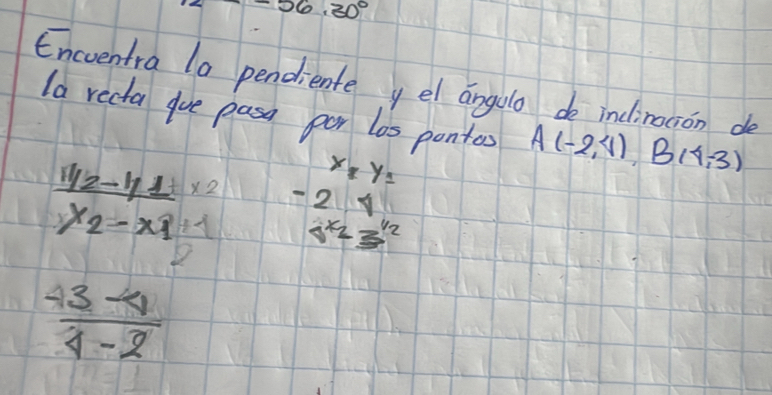 -56.30°
Encuentra la pendiente y el ángulo de inclinación de
la recta que pasa por los pontos A(-2,4), B(4,-3)
x1 y1
-2 4
4x2 3y2
y2-y1
x2-x1
-3-4
4-2